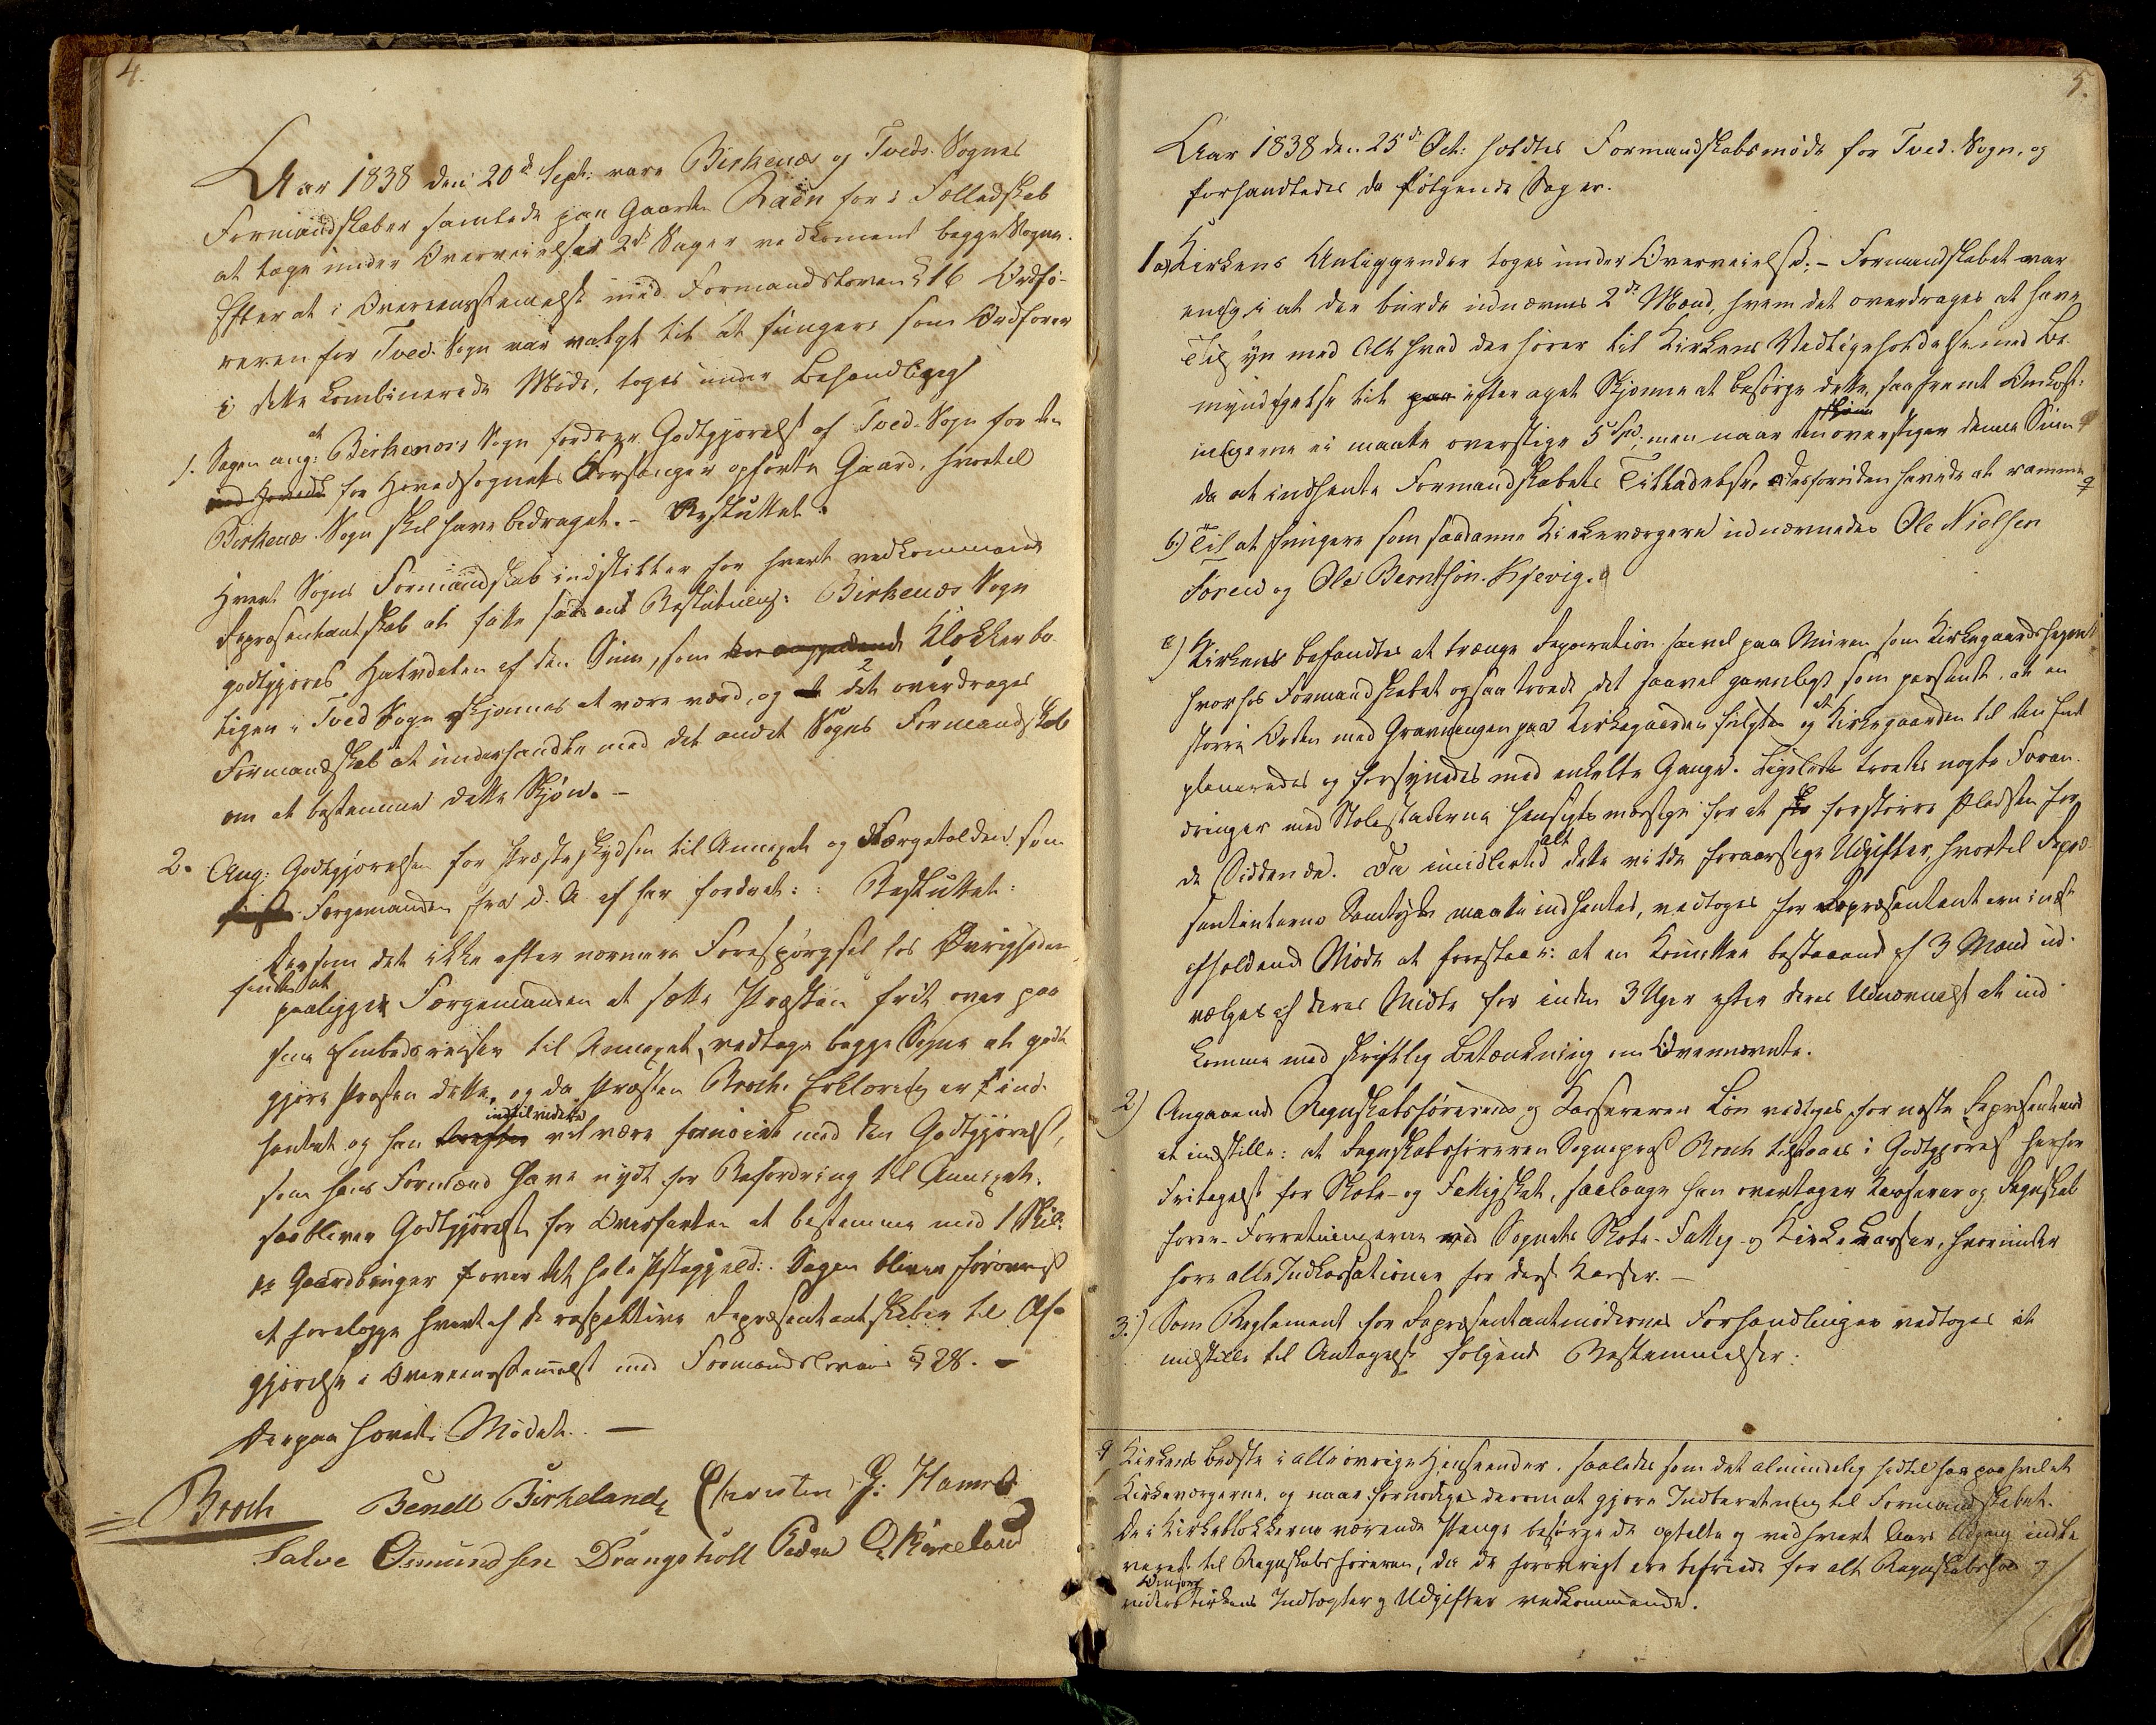 4.
Aar 1838 den 20de Sept: vare Birkenæs og Tveds Sognes
Formandskaber samlede paa Gaarden Raen for i Fælledskab
at tage under Overveielse 2de Sager vedkomend begge Sogne.
Efter at i Overeensstemelse med Formandsloven § 16 Ordfø-
reren for Tved Sogn var valgt til at fungere som Ordfører
i dette kombinerede Møde, toges under Behandling
1. Sagen ang: at Birkenæs Sogn fordrer Godtgjørelse af Tved Sogn for den
for Hovedsognets Forsanger opførte Gaard, hvortil
Birkenæs Sogn skal have bidraget. - Besluttet:
Hvert Sogns Formandskab indstiller for hvert vedkommend
Repræsentantskab at fatte saadant Beslutning: Birkenæs Sogn
godtgjøres Halvdelen af den Sum, som Klokkerbo-
ligen i Tved Sogn skjønnes at være værd, og det overdrages
Formandskab at underhandle med det andet Sogns Formandskab
om at bestemme dette Skjøn. -
2. Ang: Godtgjørelsen for Præsteskydsen til Annexet og Færgetolden som
Færgemanden fra d. A. af har fordret: Besluttet:
Dersom det ikke efter nærmere Forespørgsel hos Øvrigheden
findes at
paaligge Færgemanden at sætte Præsten frit over paa
sine Embedsreiser til Annexet, vedtage begge Sogne at godt-
gjøre Præsten dette, og da Præsten Brochs Erklæring er ind-
hentet og han indtil videre vil være fornøiet med den Godtgjørelse,
som hans Formænd have nydt for Befordring til Annexet,
saa bliver Godtgjørelse for Overfarten at bestemme med 1 Skil:
pr Gaardbruger over det hele Præstegjeld:. Sagen bliver forøvrigt
at forelægge hvert af de respektive Repræsentantskaber til Af-
gjørelse i Overeensstemmelse med Formandsloven § 28. -
Derpaa hævet Mødet. -
Broch Bendt Birkeland Christen G: Hamre
Salve Osmundsen Drangsholt Peder O Birkeland
5.
Aar 1838 den 25de Oct: holdtes Formandskabsmøde for Tved Sogn, og
forhandledes da følgende Sager.
1 a) Kirkens Anliggender toges under Overveielse. - Formandskabet var
enig i at der burde udnævnes 2de Mænd, hvem det overdrages at have
Tilsyn med Alt hvad der hører til Kirkens Vedligeholdelse med Be-
myndigelse til efter eget Skjønne at besørge dette, saafremt Omkost-
ningerne ei maatte overstige 5 Spd. men naar den overstiger denne Sum
da at indhente Formandskabets Tilladelse, desforuden havde at ramme
b) Til at fungere som saadanne Kirkeværgere udnævnedes Ole Nielsen
Føreid og Ole Berntsøn Kjevig.
c) Kirken befandtes at trænge Reparation saavel paa Muren som Kirkegaardshegnet
hvorhos Formandskabet ogsaa troede det saavel gavnligt som passende, at en
større Orden med Gravningen paa Kirkegaarden fulgtes og at Kirkegaarden til den Ende
planeredes og forsynedes med enkelte Gange. Ligeledes troedes nogle Foran-
dringer med Stolestaderne hensigtsmæssige for at forstørre Pladsen for
de Siddende. Da imidlertid alt dette vilde foraarsage Udgifter, hvortil Repræ-
sentanternes Samtykke maatte indhentes, vedtoges for Repræsentanterne i næst
afholdende Møde at foreslaae: at en Komittee bestaaende af 3 Mænd ud-
vælges af deres Midte for inden 3 Uger efter deres Udnævnelse at ind-
komme med skriftlig Betænkning om Ovennævnte.
2) Angaaende Regnskabsførerens og Kassererens Løn vedtoges for næste Repræsentantmøde
at indstille: at Regnskabsføreren Sognepræst Broch tilstaaes i Godtgjørelse herfor
Fritagelse for Skole- og Fattigskat, saalænge han overtager Kasserer og Regnskabs-
fører-Forretningerne ved Sognets Skole- Fattig- og Kirkekasser, hvorunder
høre alle Indkassationer for disse Kasser. -
3.) Som Reglement for Repræsentantmødernes Forhandlinger vedtoges at
indstille til Antagelse følgende Bestemmelser:
Kirkens bedste i alle øvrige Henseender, saaledes som det almindelig hidtil har paahvilet
Kirkeværgerne, og naar fornødiges derom at gjøre Indberetning til Formandskabet.
De i Kirkeblokkerne værende Penge besørge de optalte og ved hvert Aars Udgang indle-
veret til Regnskabsføreren, da de forøvrigt ere befriede for alt Regnskabshold og
videre Omsorg Kirkens Indtægter og Udgifter vedkommende.